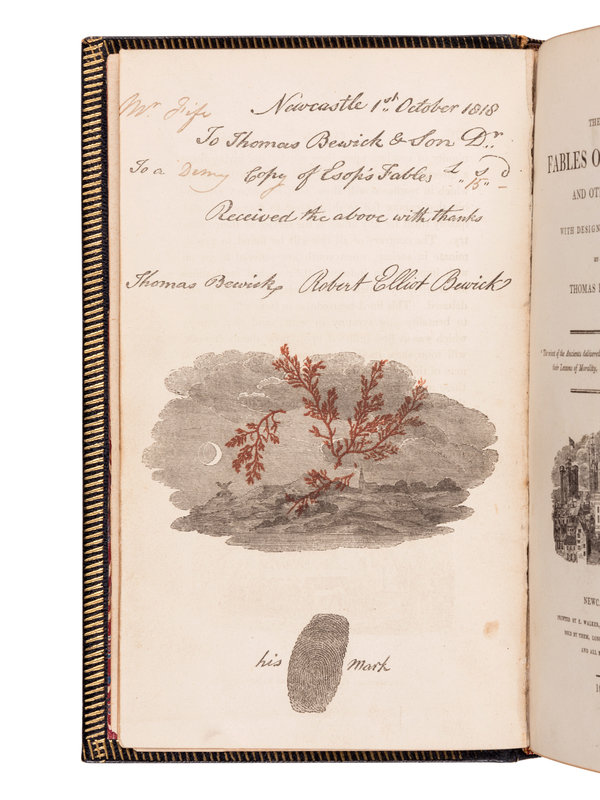 Mr. Fife
Newcastle 1st October 1818
To Thomas Bewick & Son Dr.
To a Demy Copy of Esop's Fables £ " s 15 " d -
Received the above with thanks
Thomas Bewick, Robert Elliot Bewick
his mark
THE
FABLES O
AND OT
WITH DESIGN
BY
THOMAS
"The wisest of the Ancients delivered
their Lessons of Morality,
NEWC
PRINTED BY E. WALKER,
SOLD BY THEM, LON
AND ALL